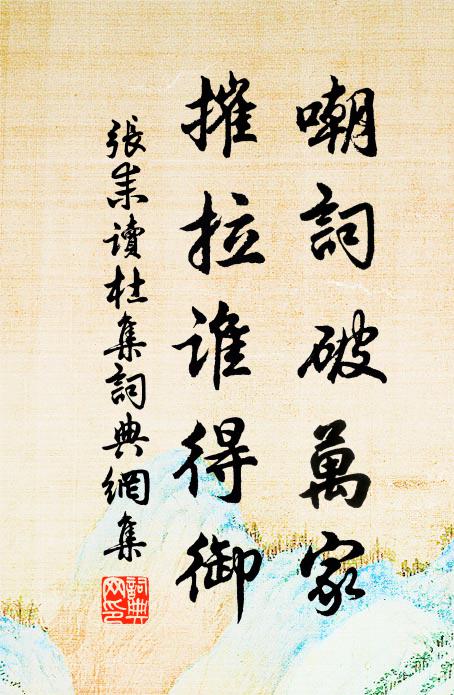 嘲詞破萬家
摧拉谁得御
張耒讀杜集詞典網集
詞典網